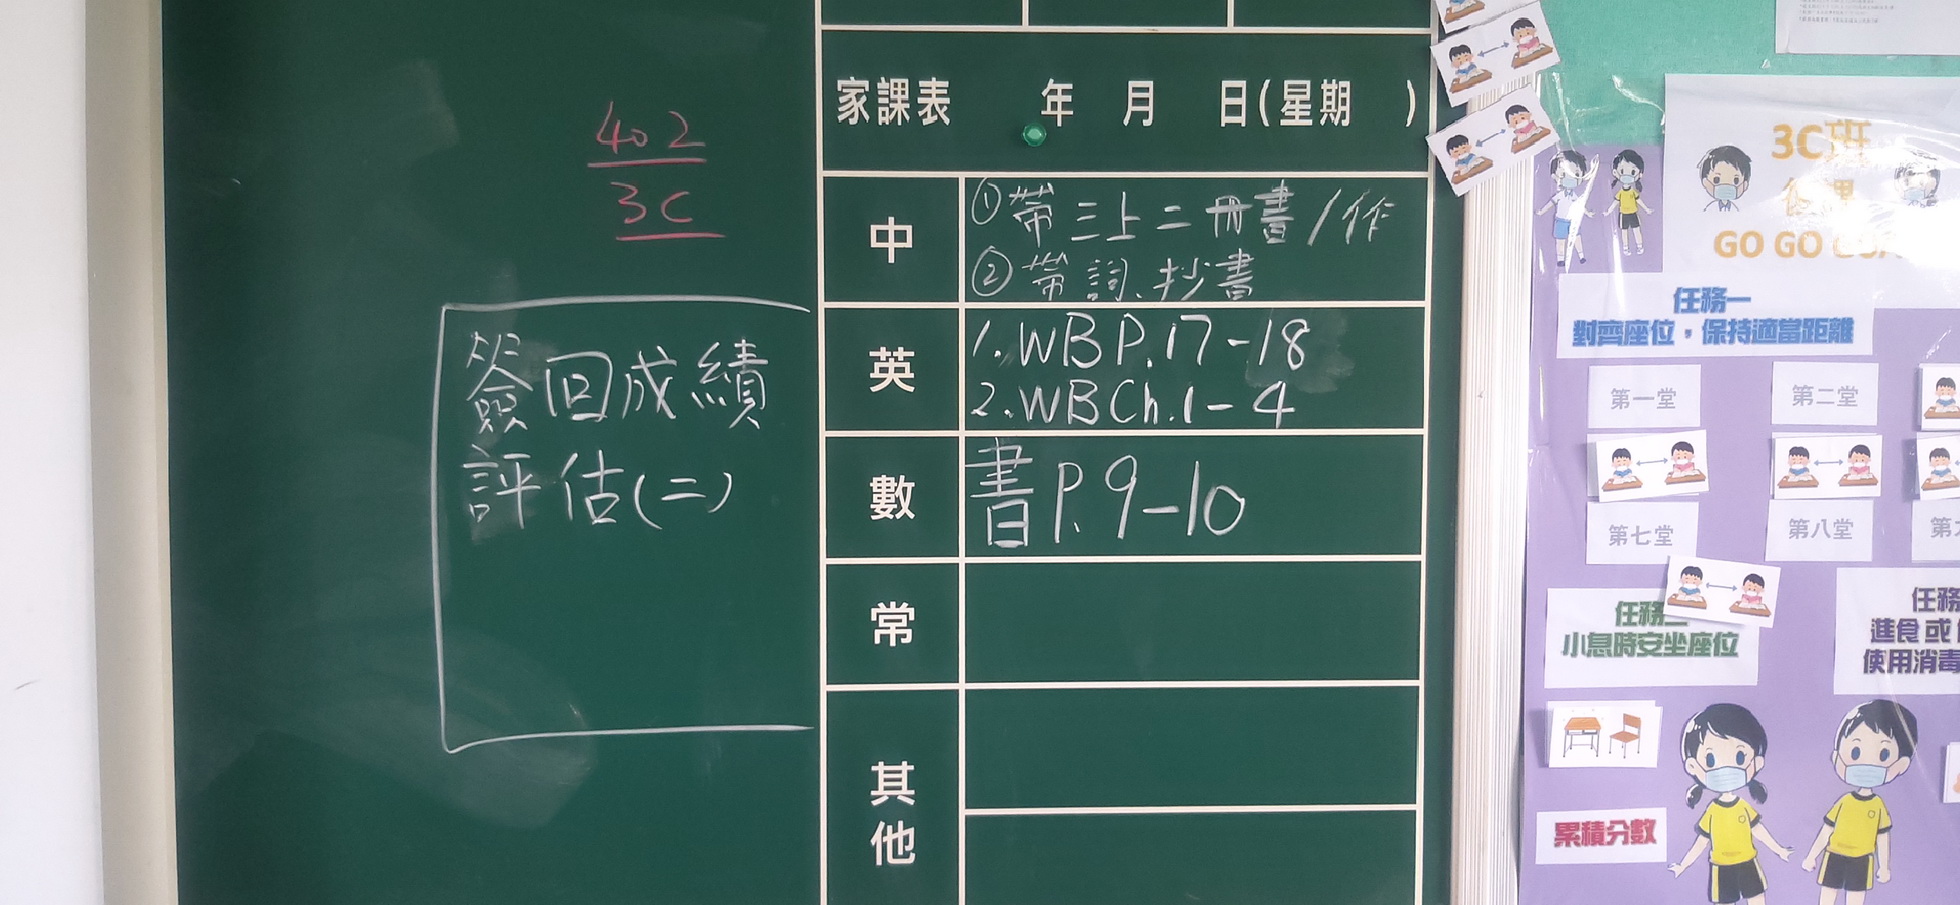 402
3C
簽回成績
評估(二)
家課表 年 月 日(星期 )
中
①帶三上二冊書/作
②帶詞、抄書
英
1.WB P.17-18
2.WB Ch.1-4
數
書P.9-10
常
其他
3C班
GO GO
任務一
對齊座位，保持適當距離
第一堂 第二堂
第七堂 第八堂
任務
小息時安坐座位
任務
進食或
使用消毒
累積分數